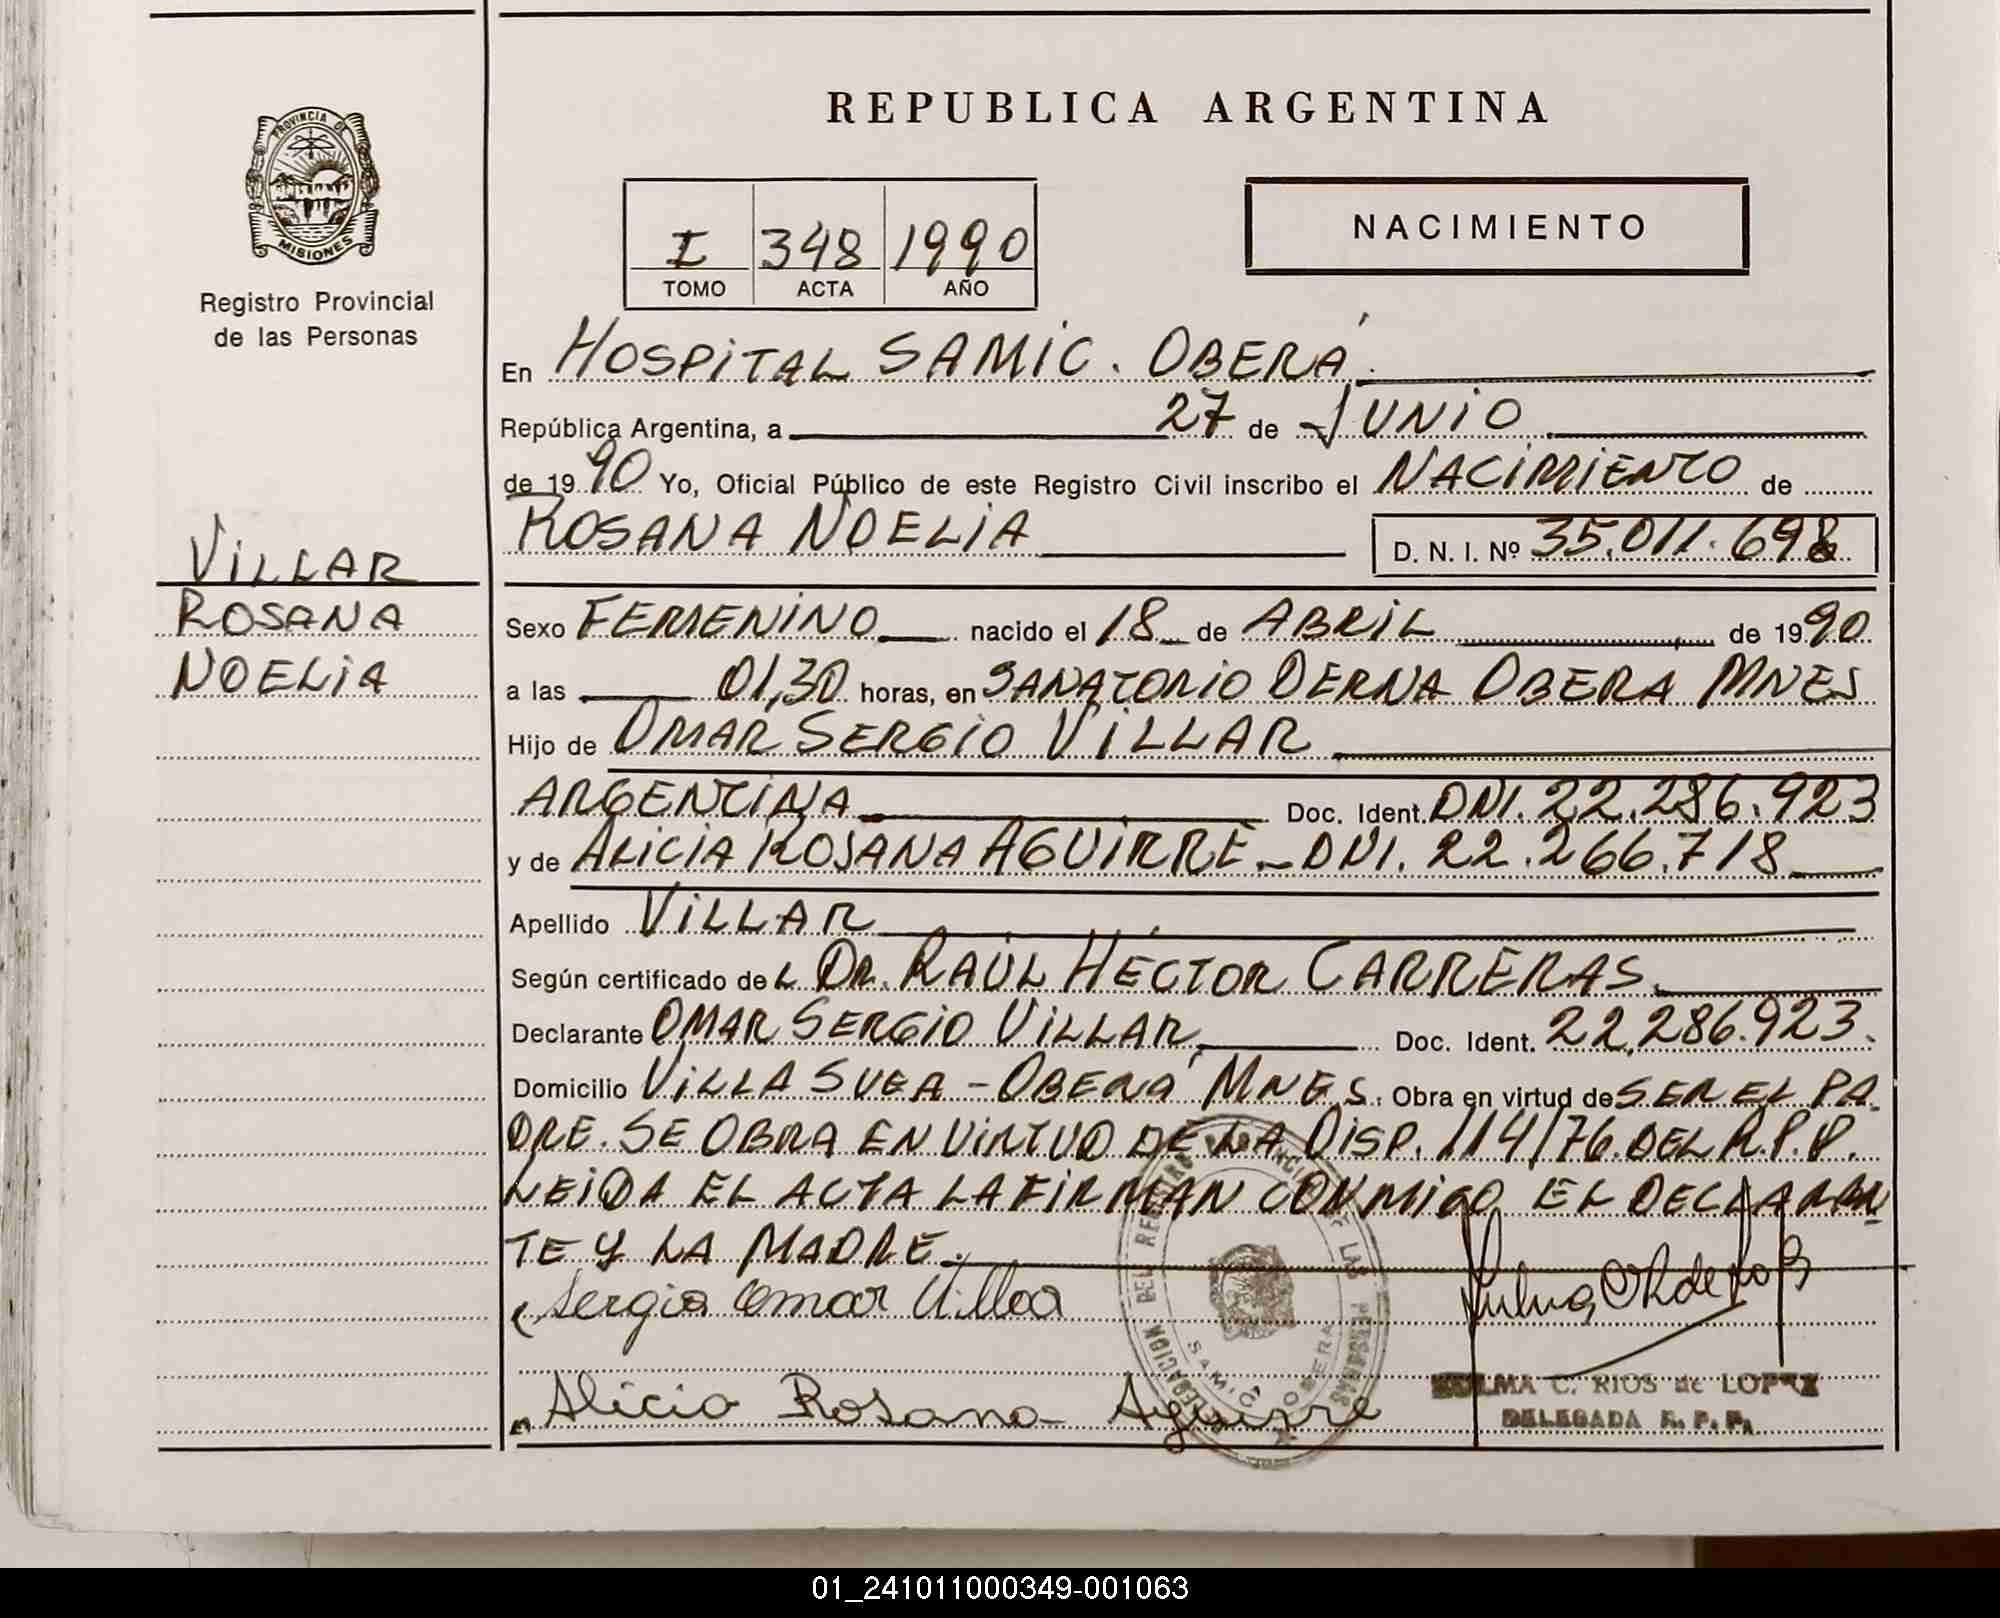 REPUBLICA ARGENTINA
PROVINCIA DE
MISIONES
Registro Provincial
de las Personas
I 348 1990
TOMO ACTA AÑO
NACIMIENTO
En HOSPITAL SAMIC. OBERÁ.
República Argentina, a 27 de JUNIO
de 1990 Yo, Oficial Público de este Registro Civil inscribo el NACIMIENTO de
ROSANA NOELIA D. N. I. Nº 35.011.698
VILLAR
ROSANA
NOELIA
Sexo FEMENINO nacido el 18 de ABRIL de 1990
a las 01,30 horas, en SANATORIO DERNA OBERA MNES
Hijo de OMAR SERGIO VILLAR
ARGENTINA Doc. Ident. DNI. 22.286.923
y de ALICIA ROSANA AGUIRRE - DNI. 22.266.718
Apellido VILLAR
Según certificado del DR. RAÚL HÉCTOR CARRERAS.
Declarante OMAR SERGIO VILLAR Doc. Ident. 22.286.923.
Domicilio VILLA SVEA - OBERÁ MNES. Obra en virtud de SER EL PA
DRE. SE OBRA EN VIRTUD DE LA DISP. 114/76. DEL R.P.P.
LEIDA EL ACTA LA FIRMAN CONMIGO EL DECLARAN
TE Y LA MADRE.
Sergio Omar Villar
Alicia Rosana Aguirre
DELEGACION DEL REGISTRO PROVINCIAL DE LAS PERSONAS
SAMIC OBERA
C. RIOS de LOPEZ
DELEGADA R. P. P.
01_241011000349-001063